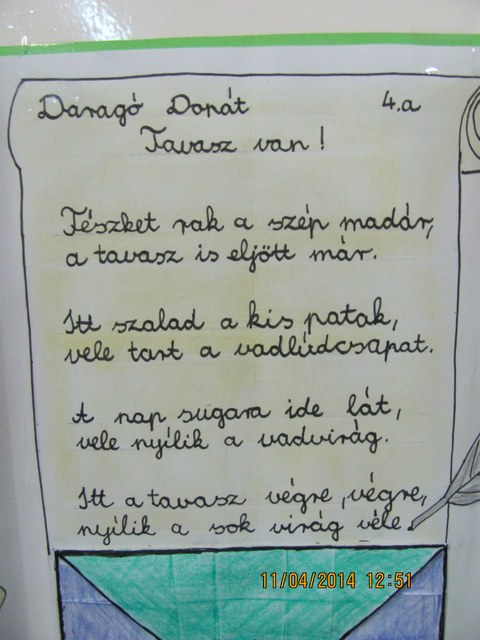 Daragó Donát 4.a
Tavasz van!
Fészket rak a szép madár,
a tavasz is eljött már.
Itt szalad a kis patak,
vele tart a vadlúdcsapat.
A nap sugara ide lát,
vele nyílik a vadvirág.
Itt a tavasz végre, végre,
nyílik a sok virág véle.
11/04/2014 12:51